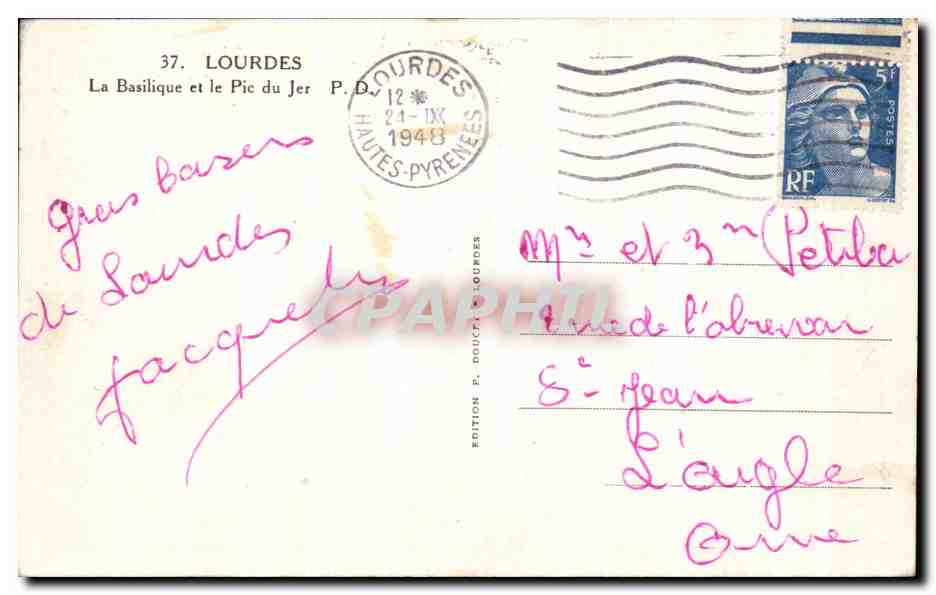 37. LOURDES
La Basilique et le Pic du Jer P. D.
LOURDES
12*
24-IX
1948
HAUTES-PYRENEES
5F
POSTES
RF
gros basers
de Lourdes
Jacquely
EDITION P. DOUCET - LOURDES
CPAPHIL
Mr et
rue de l'abrevoir
St Jean
L'aigle
Orne